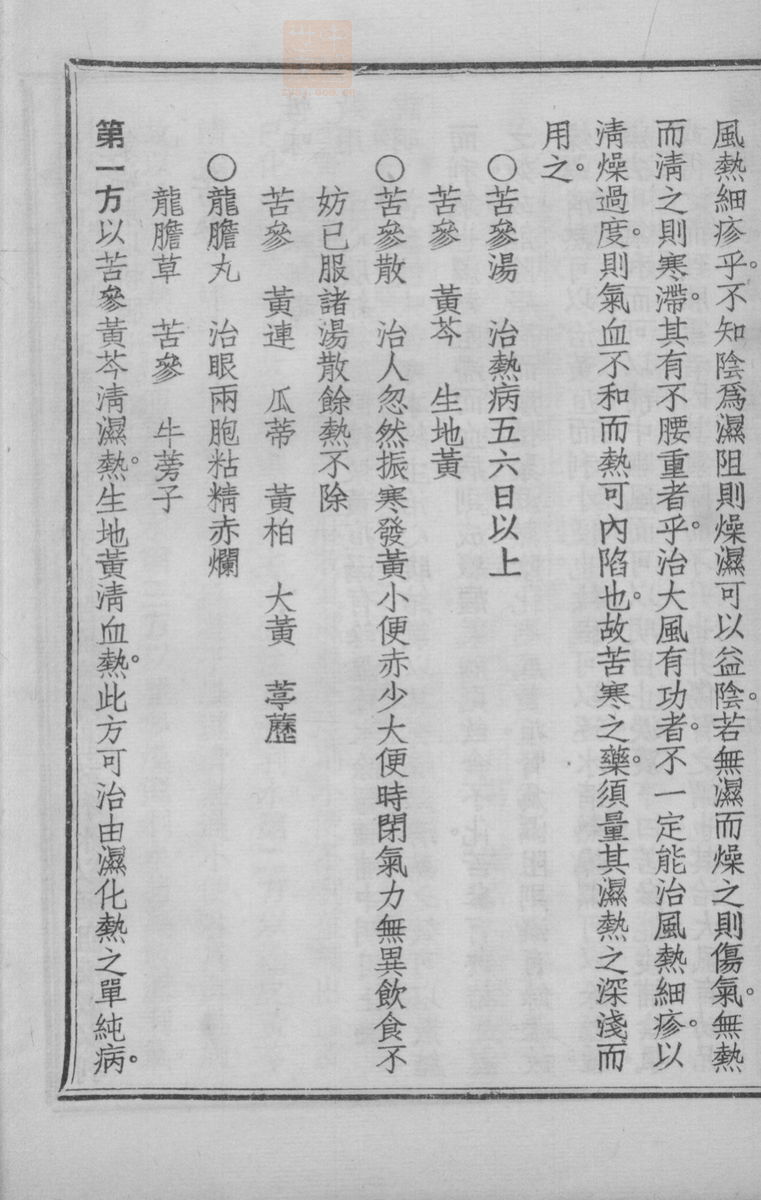 風熱細疹乎。不知陰爲濕阻則燥濕可以益陰。若無濕而燥之則傷氣。無熱
而淸之則寒滯。其有不腰重者乎。治大風有功者。不一定能治風熱細疹。以
淸燥過度。則氣血不和而熱可內陷也。故苦寒之藥。須量其濕熱之深淺而
用之。
○苦參湯　治熱病五六日以上
苦參　黃芩　生地黃
○苦參散　治人忽然振寒發黃小便赤少大便時閉氣力無異飲食不
妨已服諸湯散餘熱不除
苦參　黃連　瓜蒂　黃柏　大黃　葶藶
○龍膽丸　治眼兩胞粘精赤爛
龍膽草　苦參　牛蒡子
第一方以苦參黃芩淸濕熱。生地黃淸血熱。此方可治由濕化熱之單純病。